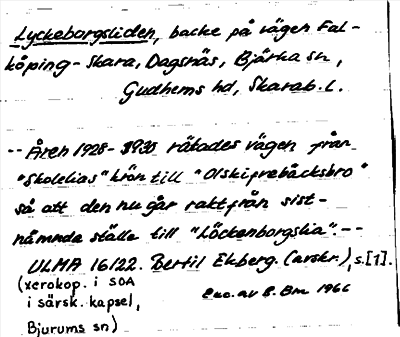 Lyckeborgsliden, backe på vägen Fal-
köping-Skara, Dagsnäs, Bjärka sn,
Gudhems hd, Skarab. l.
-- Åren 1928-1930 rätades vägen från
"Skolelias" krön till "Olskiprebäcksbro"
så att den nu går rakt från sist-
nämnda ställe till "Löckenborgslia". --
ULMA 16122. Bertil Ekberg. (avskr.), s.[1].
(xerokop. i SOA
i särsk. kapsel,
Bjurums sn)
exc. av B. Bm 1966